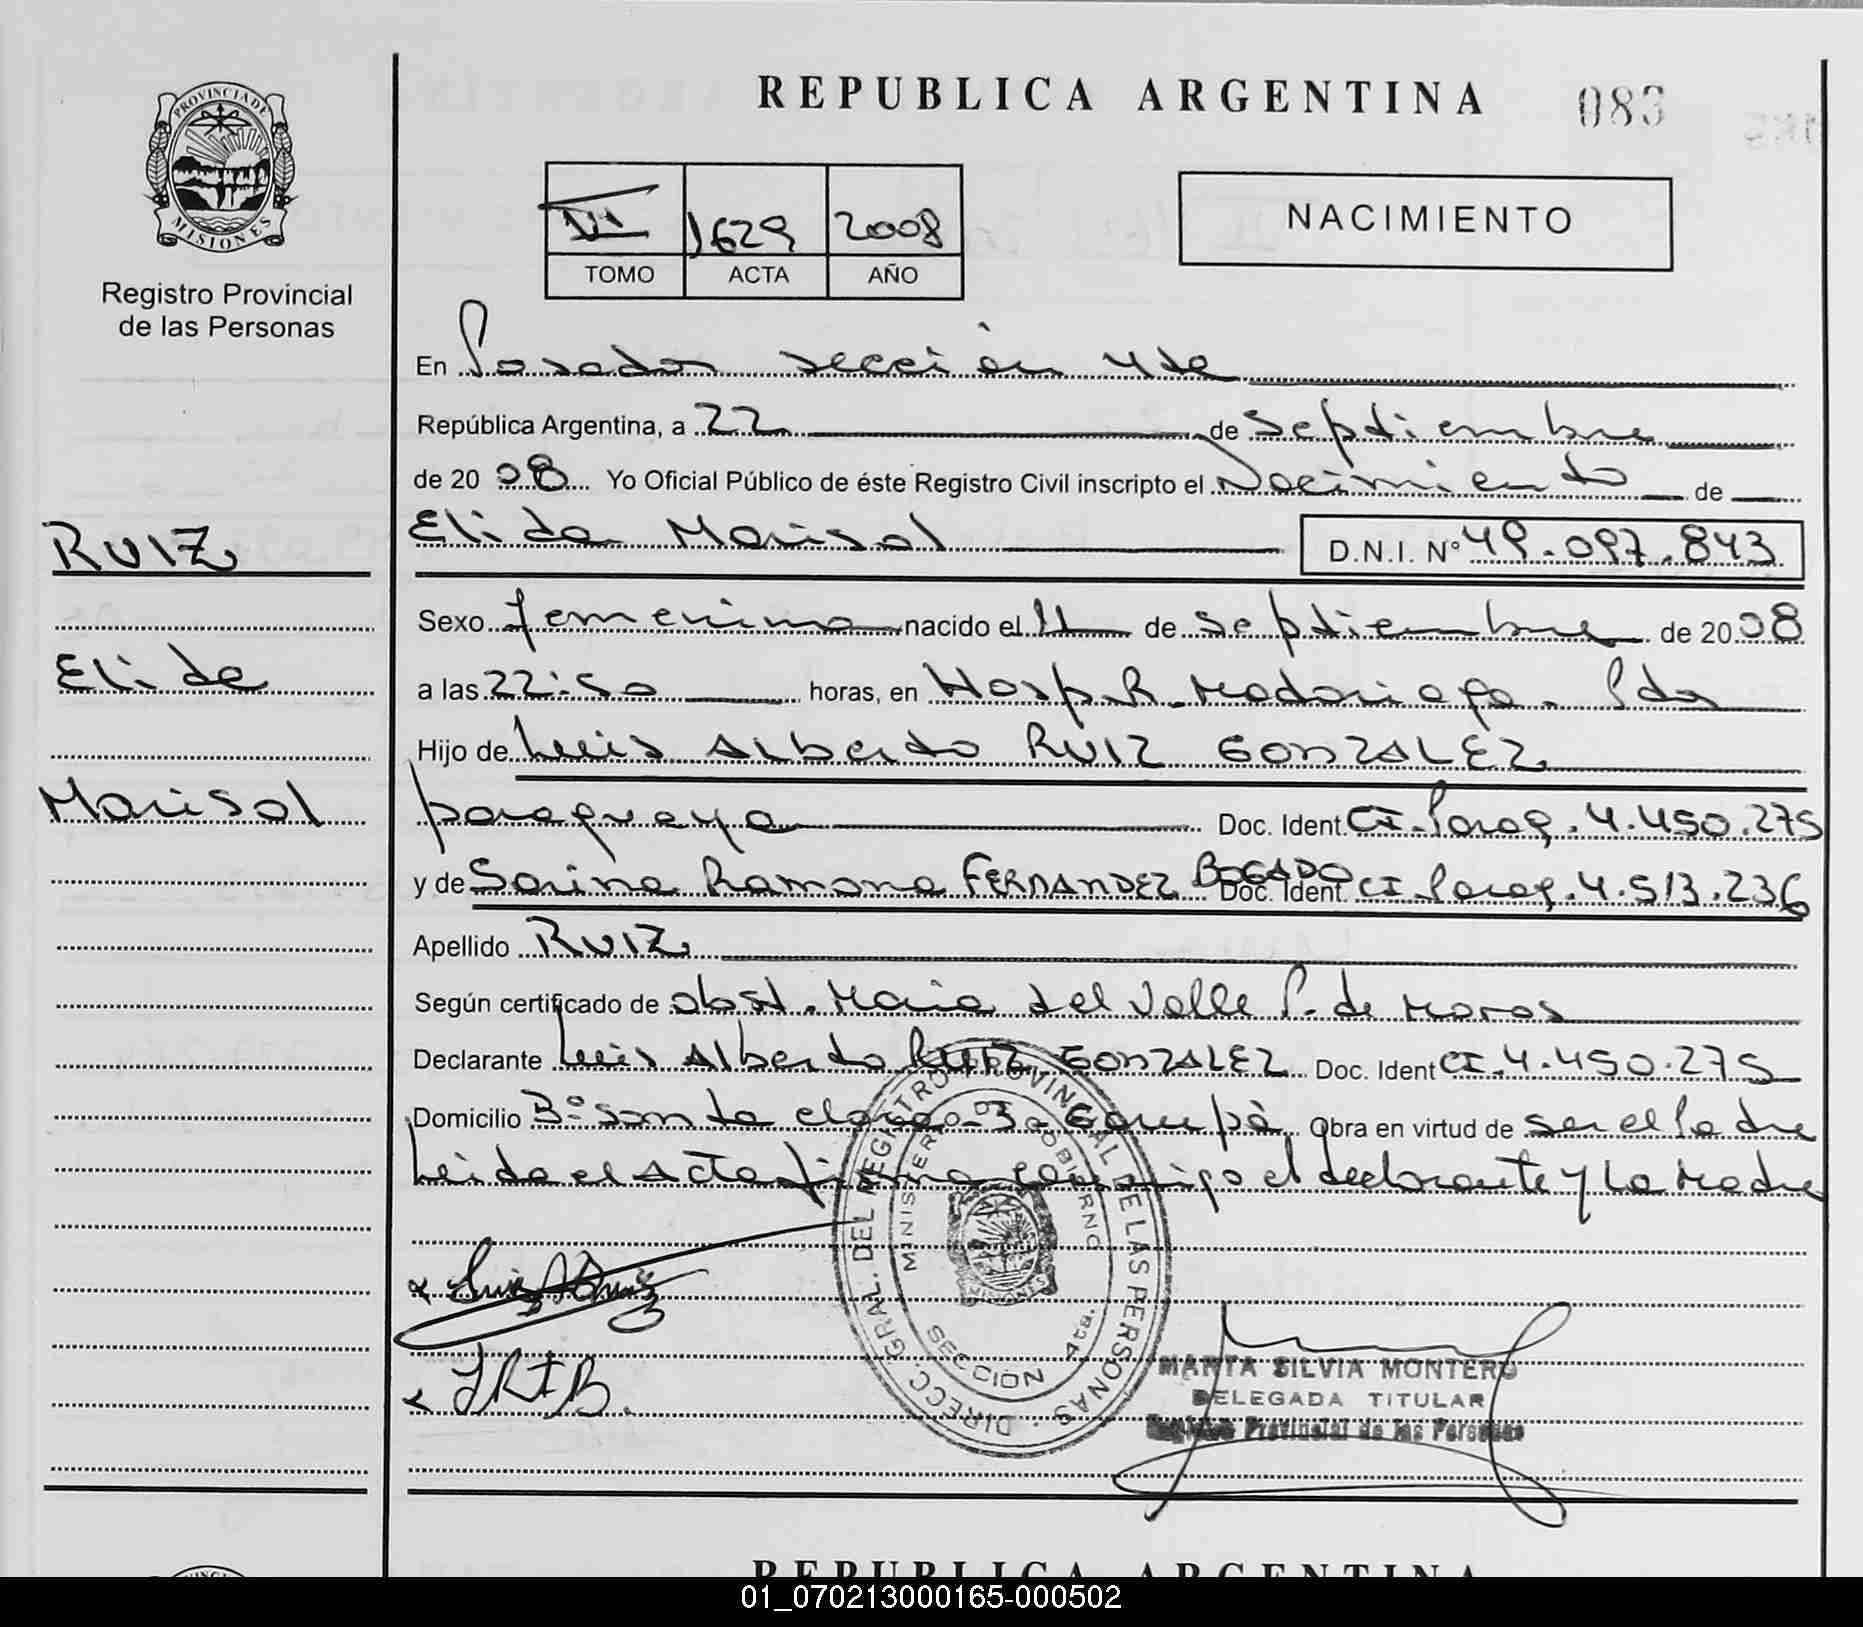 REPUBLICA ARGENTINA 083
PROVINCIA DE
MISIONES
Registro Provincial
de las Personas
1629 2008
TOMO ACTA AÑO
NACIMIENTO
En Posadas sección 4ta
República Argentina, a 22 de Septiembre
de 2008 Yo Oficial Público de éste Registro Civil inscripto el Nacimiento de
RUIZ
Elida
Marisol
Elida Marisol D.N.I. Nº 49.097.843
Sexo femenino nacido el 11 de Septiembre de 2008
a las 22:50 horas, en Hosp. R. Madariaga. Pdas
Hijo de Luis Alberto RUIZ GONZALEZ
paraguaya Doc. Ident. CI. Parag. 4.450.275
y de Sarina Ramona FERNANDEZ BOGADO Doc. Ident. CI Parag. 4.513.236
Apellido RUIZ
Según certificado de obst. Maria del Valle P. de Moras
Declarante Luis Alberto RUIZ GONZALEZ Doc. Ident CI. 4.450.275
Domicilio Bº Santa clara-3-Garupà Obra en virtud de ser el Padre
Leida el Acta firma conmigo el declarante y La Madre
DIRECC. GRAL. DEL REGISTRO PROVINCIAL DE LAS PERSONAS
MINISTERIO DE GOBIERNO
SECCION 4ta.
MARTA SILVIA MONTERO
DELEGADA TITULAR
Registro Provincial de las Personas
REPUBLICA ARGENTINA
01_070213000165-000502